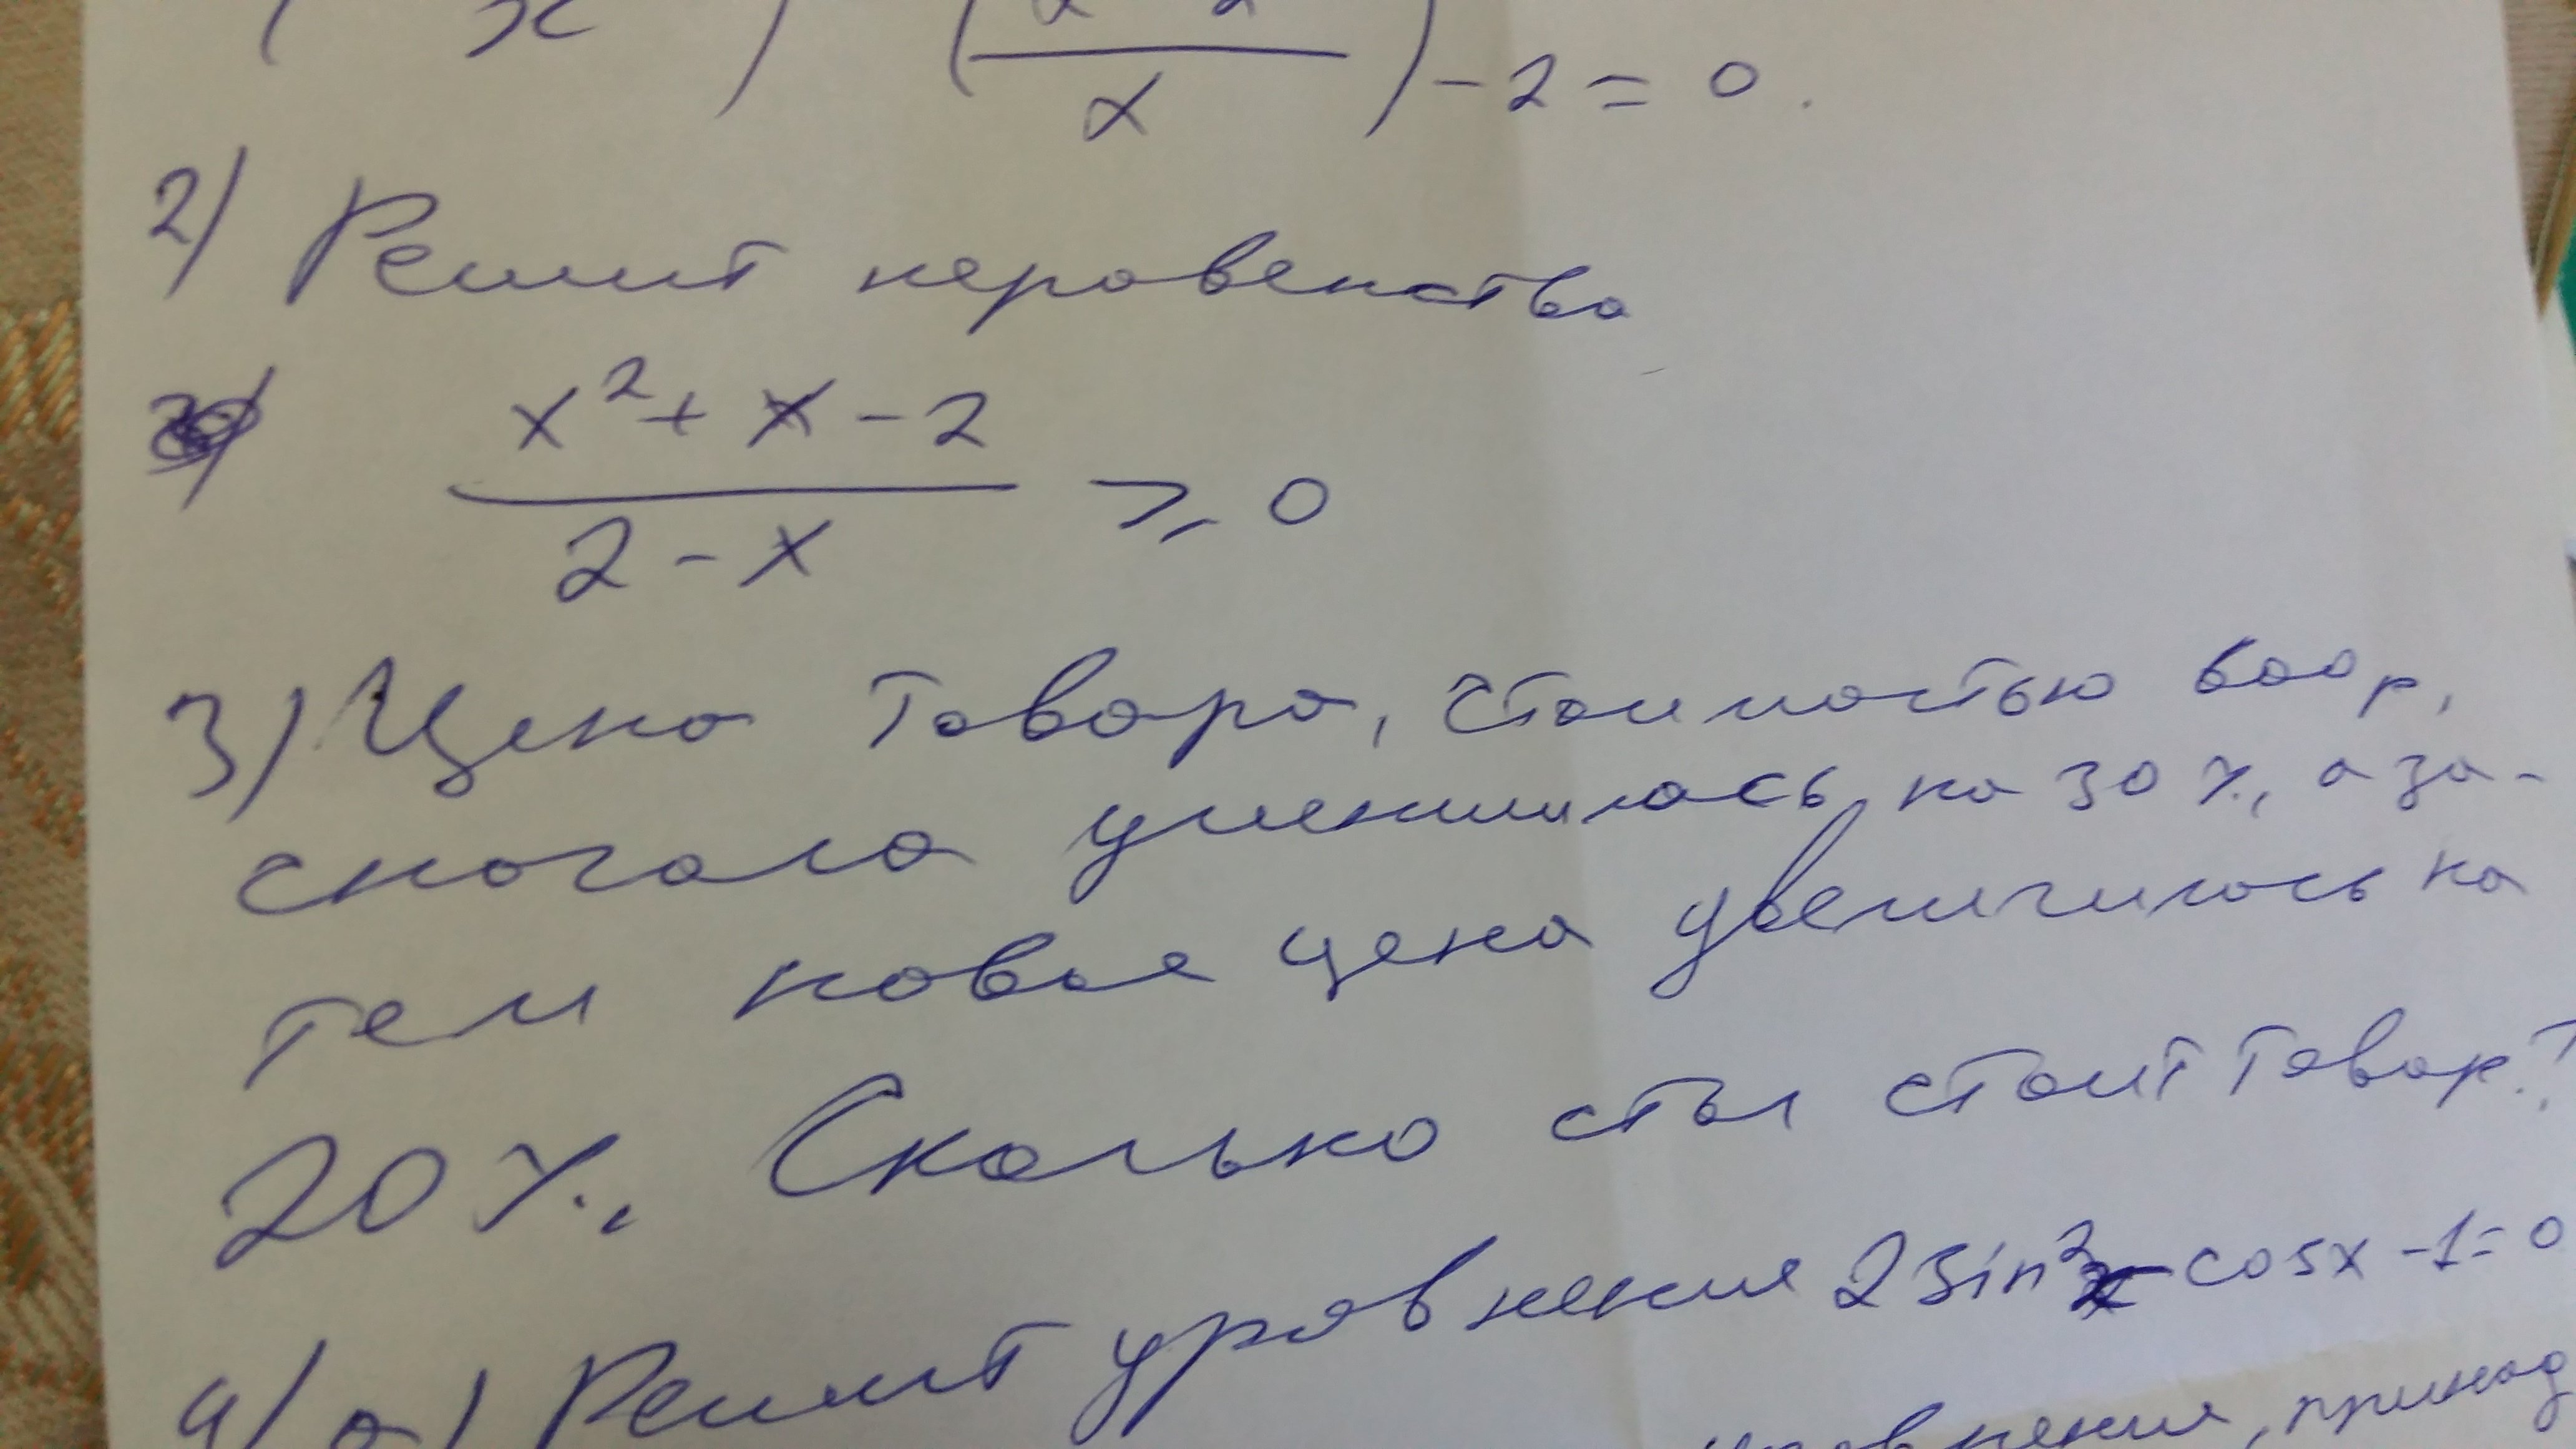 ( x ) (x 2 / x) - 2 = 0.
2) Решит неровенство
x² + x - 2
――― ≥ 0
2 - x
3) Цена товара, стоимостью 600 р,
сначала уменшилась на 30 %, а за-
тем новая цена увеличилась на
20 %. Сколько стл стоит товар?
4) а) Решит уровнения 2 sin²x - cosx - 1 = 0
уровнения, принад